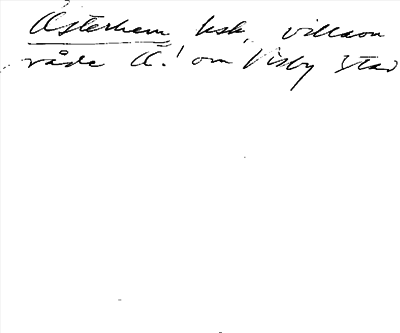 Österhem ksk, villaom
råde Ö.! om Visby stad